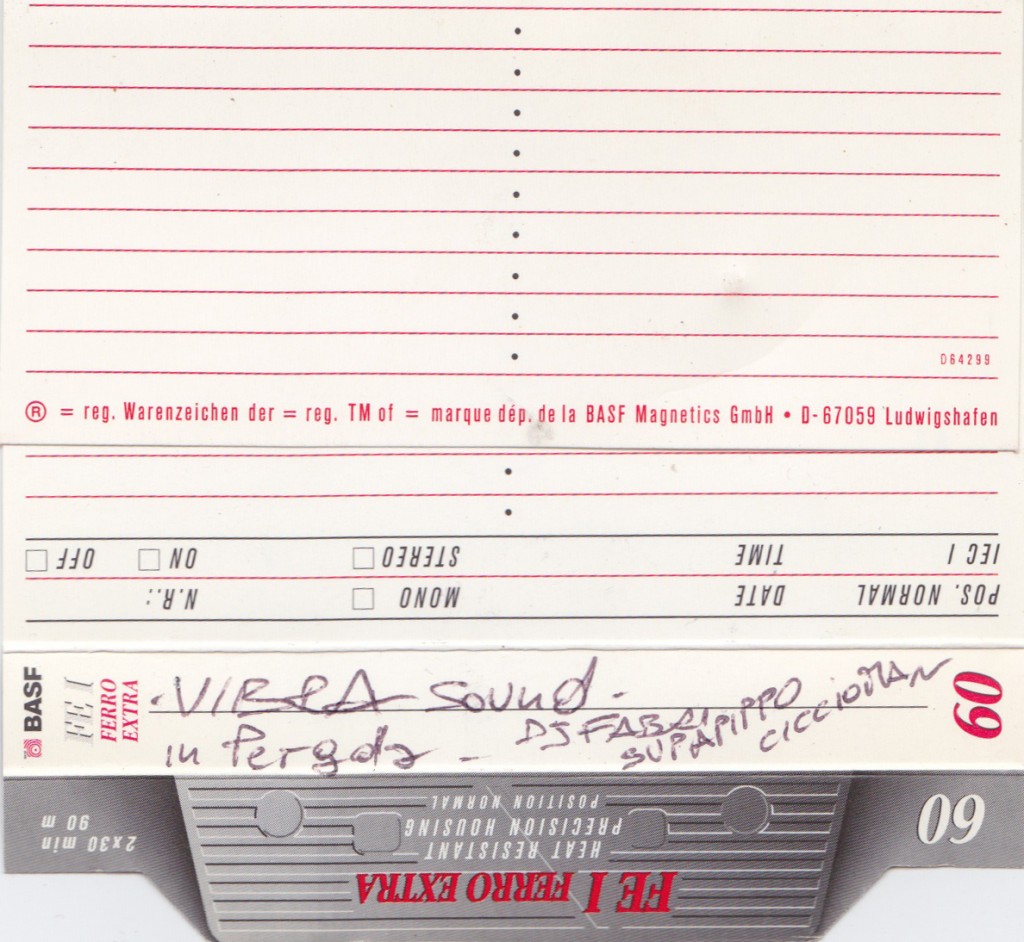 D64299
® = reg. Warenzeichen der = reg. TM of = marque dép. de la BASF Magnetics GmbH • D-67059 Ludwigshafen
IEC I TIME STEREO ON OFF
POS. NORMAL DATE MONO N.R.:
BASF
FE I
FERRO
EXTRA
-VIBRA SOUND-
in Pergola - DJ FABRI
SUPAPIPPO
CICCIOMAN
60
60
2x30 min
90 m
POSITION NORMAL
PRECISION HOUSING
HEAT RESISTANT
FE I FERRO EXTRA